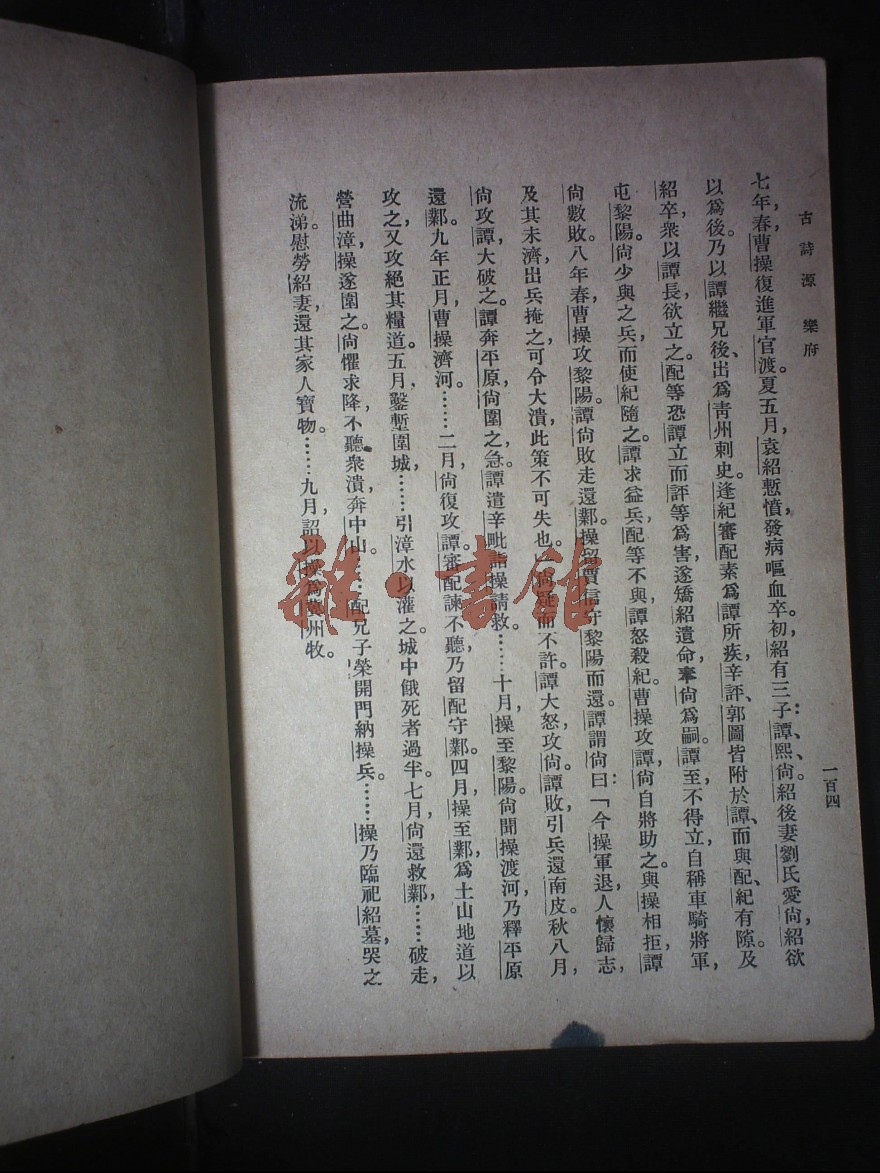 古詩源 樂府
一百四
七年,春,曹操復進軍官渡。夏五月,袁紹慙憤,發病嘔血卒。初,紹有三子:譚、熙、尙。紹後妻劉氏愛尙,紹欲
以爲後。乃以譚繼兄後、出爲靑州刺史。逢紀審配素爲譚所疾,辛評、郭圖皆附於譚、而與配、紀有隙。及
紹卒,衆以譚長,欲立之。配等恐譚立而評等爲害,遂矯紹遺命,奉尙爲嗣。譚至,不得立,自稱車騎將軍,
屯黎陽。尙少與之兵,而使紀隨之。譚求益兵,配等不與,譚怒殺紀。曹操攻譚,尙自將助之。與操相拒,譚
尙數敗。八年春,曹操攻黎陽。譚尙敗走還鄴。操留賈信守黎陽而還。譚謂尙曰:「今操軍退,人懷歸志,
及其未濟,出兵掩之,可令大潰,此策不可失也。」尙疑而不許。譚大怒,攻尙。譚敗,引兵還南皮。秋八月,
尙攻譚,大破之。譚奔平原,尙圍之急。譚遣辛毗詣操請救。……十月,操至黎陽。尙聞操渡河,乃釋平原
還鄴。九年正月,曹操濟河。……二月,尙復攻譚。審配諫不聽,乃留配守鄴。四月,操至鄴,爲土山地道以
攻之,又攻絕其糧道。五月,鑿塹圍城,……引漳水以灌之,城中餓死者過半。七月,尙還救鄴,……破走,
營曲漳,操遂圍之。尙懼求降,不聽,衆潰,奔中山。……配兄子榮開門納操兵。……操乃臨祀紹墓,哭之
流涕。慰勞紹妻,還其家人寶物。……九月,詔以操爲冀州牧。
雜·書館